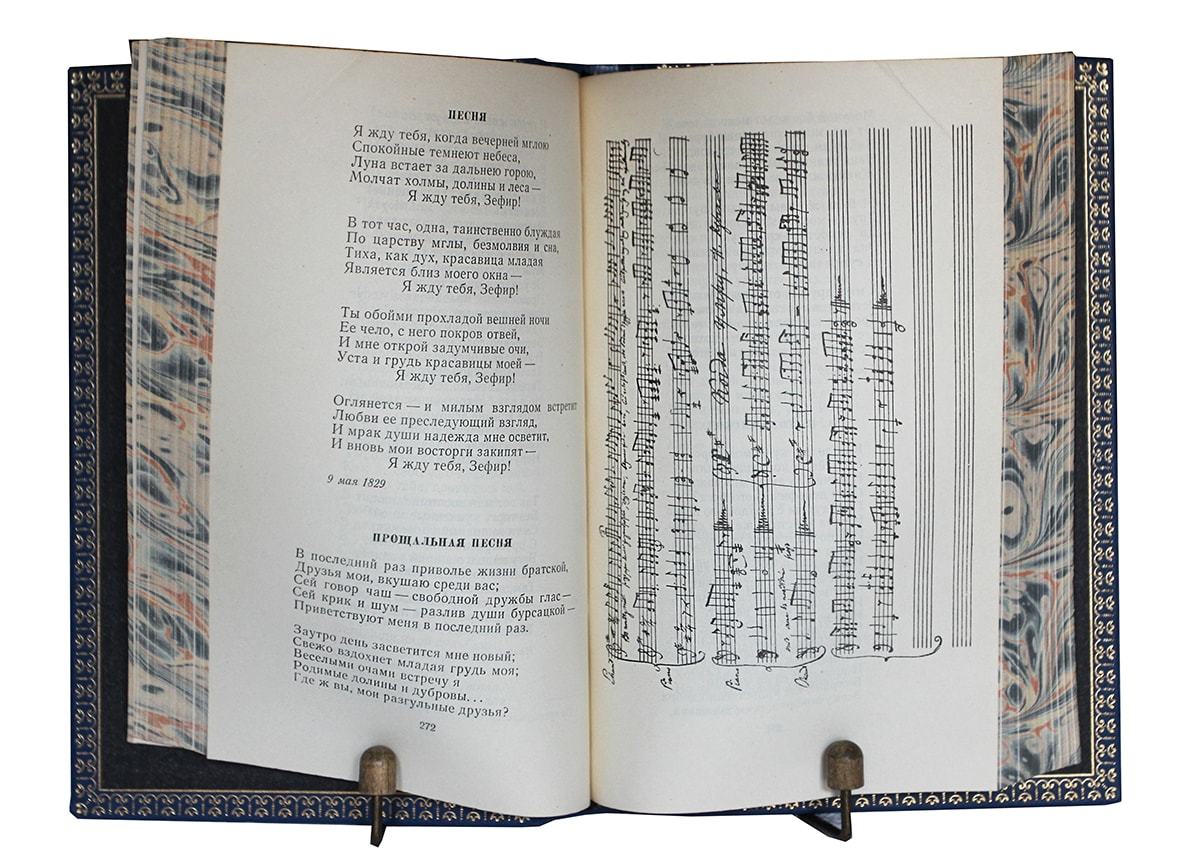 ПЕСНЯ
Я жду тебя, когда вечерней мглою
Спокойные темнеют небеса,
Луна встает за дальнею горою,
Молчат холмы, долины и леса —
Я жду тебя, Зефир!
В тот час, одна, таинственно блуждая
По царству мглы, безмолвия и сна,
Тиха, как дух, красавица младая
Является близ моего окна —
Я жду тебя, Зефир!
Ты обойми прохладой вешней ночи
Ее чело, с него покров отвей,
И мне открой задумчивые очи,
Уста и грудь красавицы моей —
Я жду тебя, Зефир!
Оглянется — и милым взглядом встретит
Любви ее преследующий взгляд,
И мрак души надежда мне осветит,
И вновь мои восторги закипят —
Я жду тебя, Зефир!
9 мая 1829
ПРОЩАЛЬНАЯ ПЕСНЯ
В последний раз приволье жизни братской,
Друзья мои, вкушаю среди вас;
Сей говор чаш — свободной дружбы глас —
Сей крик и шум — разлив души бурсацкой —
Приветствуют меня в последний раз.
Заутро день засветится мне новый;
Свежо вздохнет младая грудь моя;
Веселыми очами встречу я
Родимые долины и дубровы...
Где ж вы, мои разгульные друзья?
272
Piano
Piano